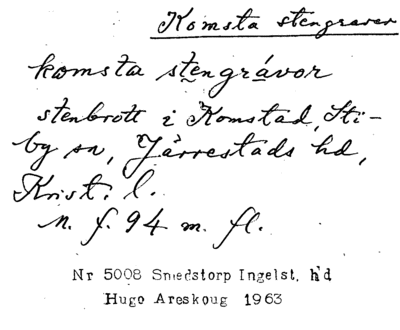 Komsta stengraver
komsta stengrávor
stenbrott i Komstad, Sti-
by sn, Järrestads hd,
Krist. l.
n. f. 94 m. fl.
Nr 5008 Smedstorp Ingelst. hd
Hugo Areskoug 1963